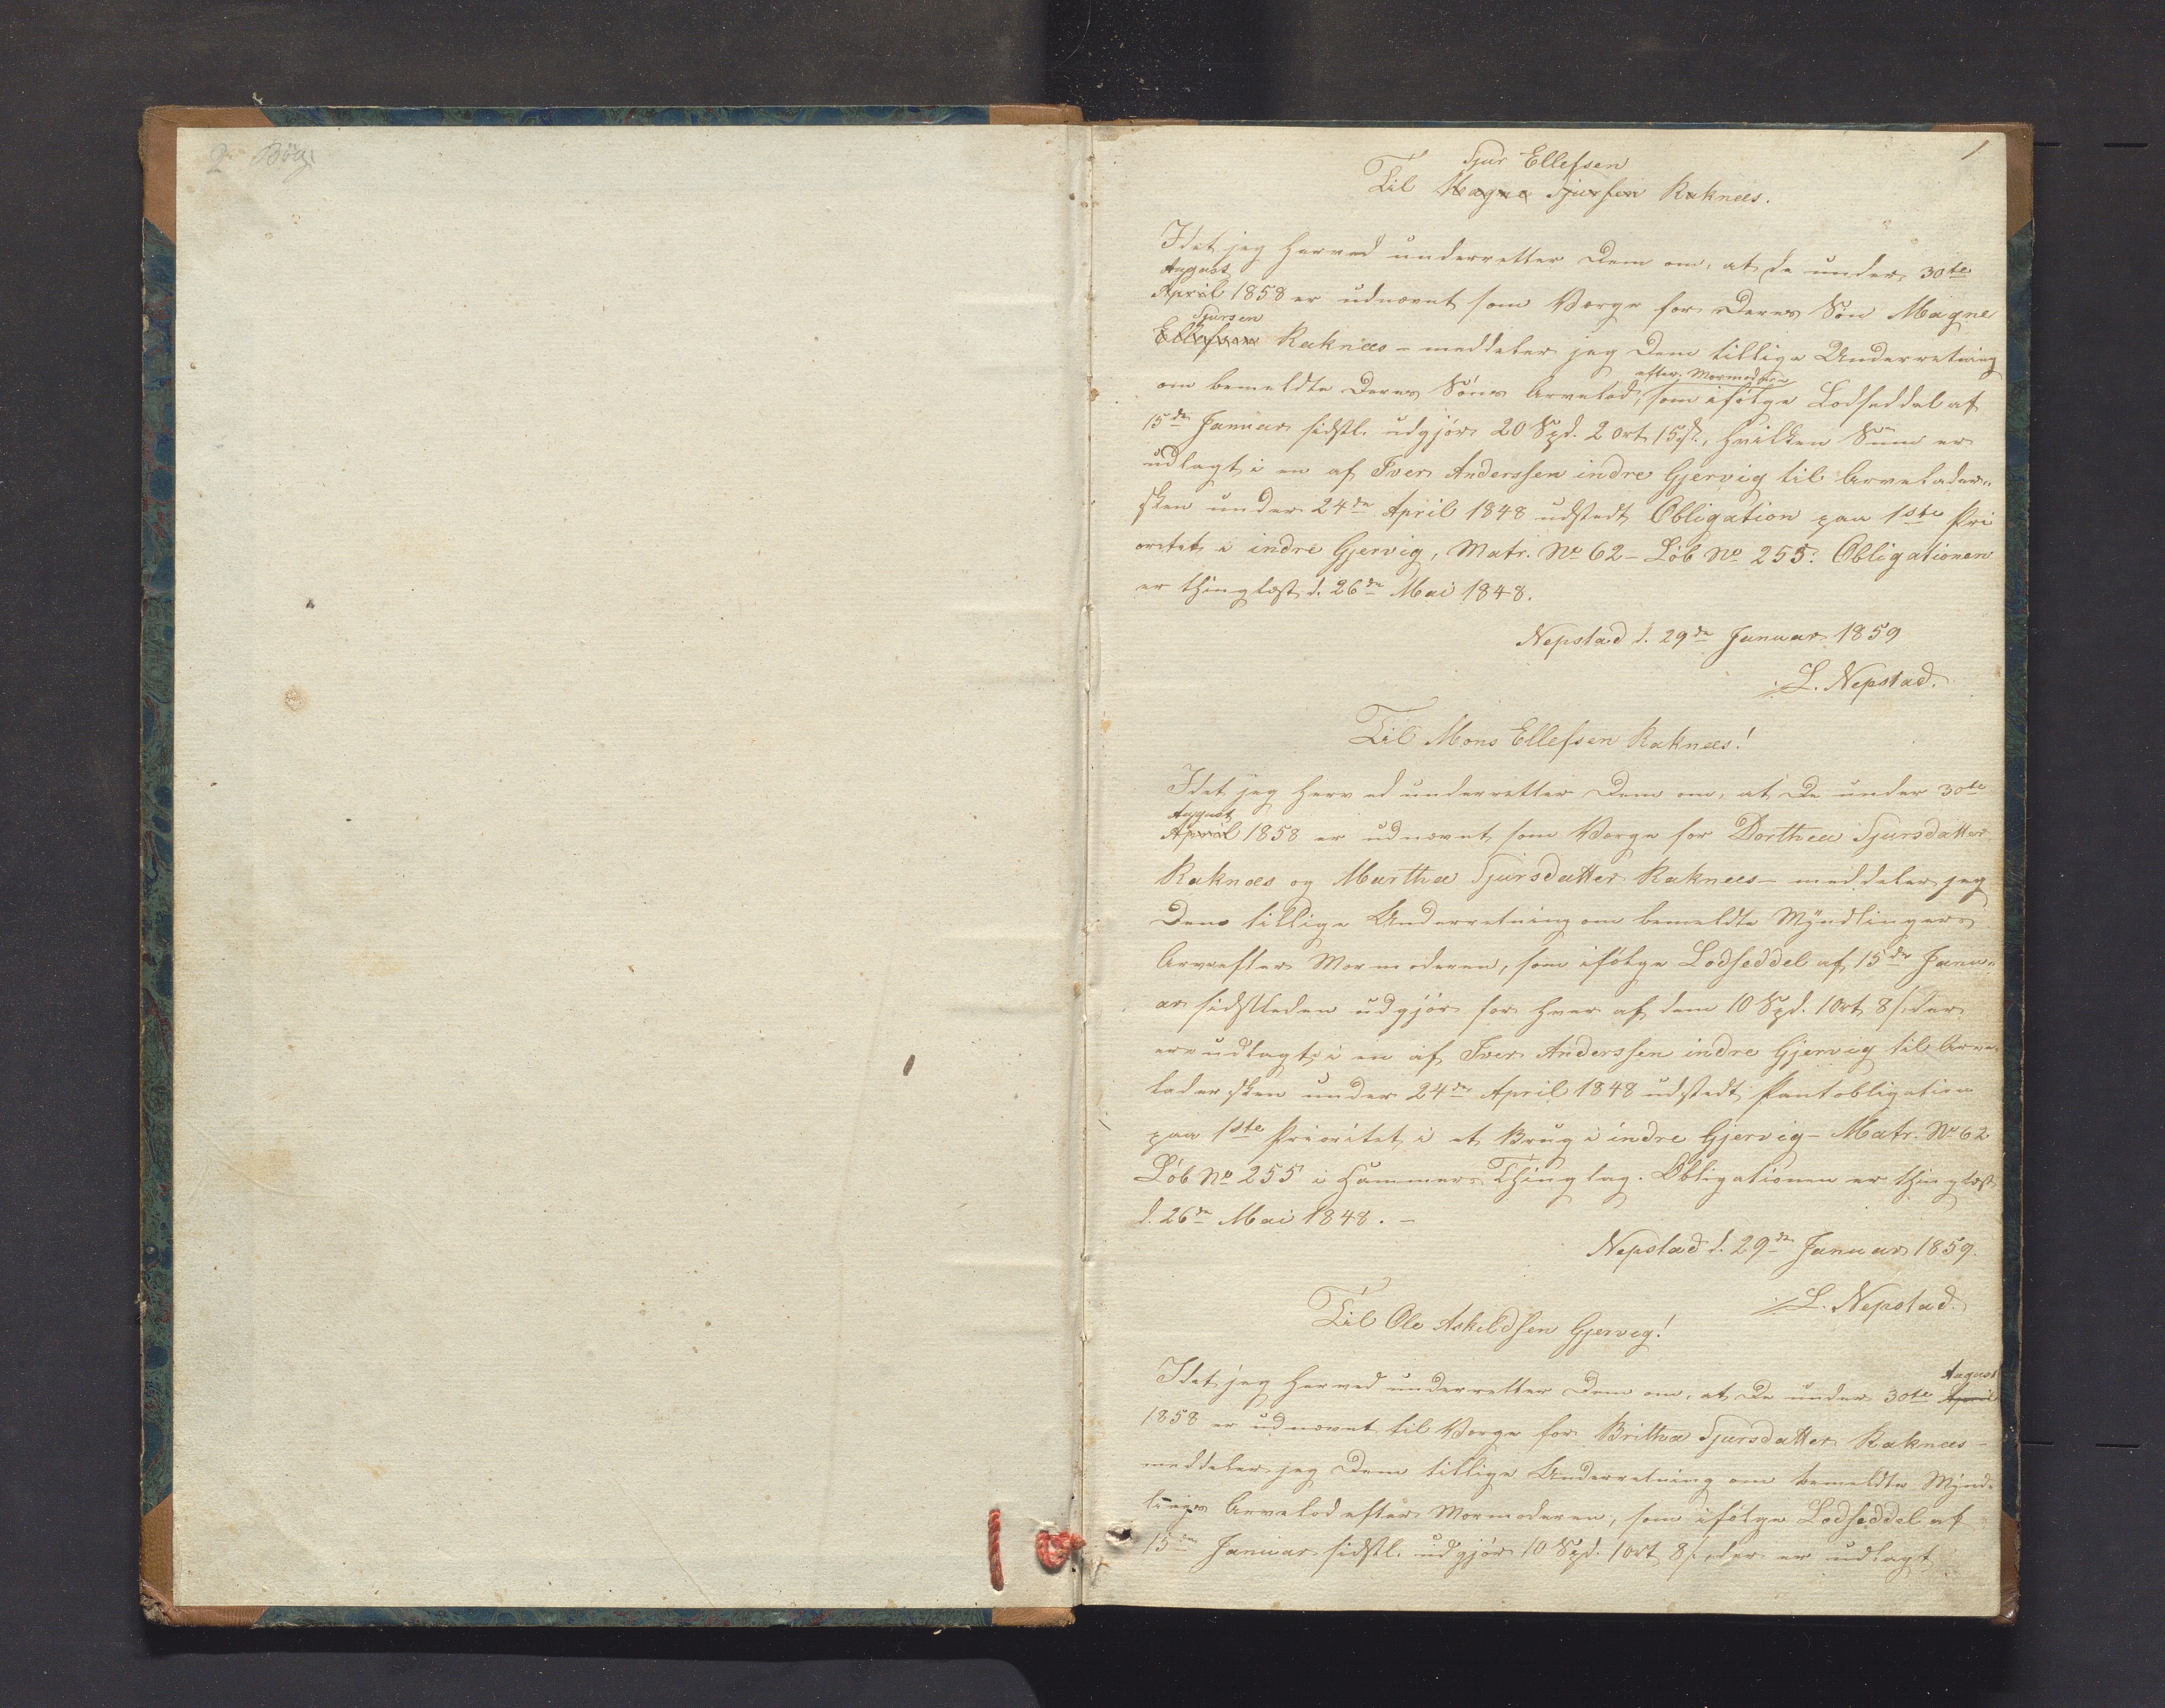 2 Bog
1
Sjur Ellefsen
Til Magne Sjursen Raknæs.
Idet jeg herved underretter Dem om, at De under 30te
August
April 1858 er udnævnt som Værge for Deres Søn Magne
Sjursen
Ellefsen Raknæs – meddeler jeg Dem tillige Underretning
efter Mormoderen
om bemeldte Deres Søns Arvelod, som ifølge Lodseddel af
15de Januar sidstl. udgjør 20 Spd. 2 Ort 15 s., hvilken Sum er
udlagt i en af Iver Anderssen indre Gjervig til Arvelader-
sken under 24de April 1848 udstedt Obligation paa 1ste Pri
oritet i indre Gjervig, Matr. No 62 – Løb No 255. Obligationen
er thinglæst d. 26de Mai 1848.
Nepstad d. 29de Januar 1859
L. Nepstad.
Til Mons Ellefsen Raknæs!
Idet jeg herved underretter Dem om, at De under 30te
August
April 1858 er udnævnt som Værge for Dorthea Sjursdatter
Raknæs og Martha Sjursdatter Raknæs – meddeler jeg
Dem tillige Underretning om bemeldte Myndlingers
Arv efter Mormoderen, som ifølge Lodseddel af 15de Janu-
ar sidstleden udgjør for hver af dem 10 Spd. 1 Ort 8 s., der
ere udlagt i en af Iver Anderssen indre Gjervig til Arve-
ladersken under 24de April 1848 udstedt Pantobligation
paa 1ste Prioritet i et Brug i indre Gjervig – Matr. No 62
Løb No 255 i Hammers Thinglag. Obligationen er thinglæst
d. 26de Mai 1848. –
Nepstad d. 29de Januar 1859.
L. Nepstad.
Til Ole Askeldsen Gjervig!
August
Idet jeg herved underretter Dem om, at De under 30te April
1858 er udnævnt til Værge for Brittha Sjursdatter Raknæs –
meddeler jeg Dem tillige Underretning om bemeldte Mynd-
lings Arvelod efter Mormoderen, som ifølge Lodseddel af
15de Januar sidstl. udgjør 10 Spd. 1 Ort 8 s., der er udlagt